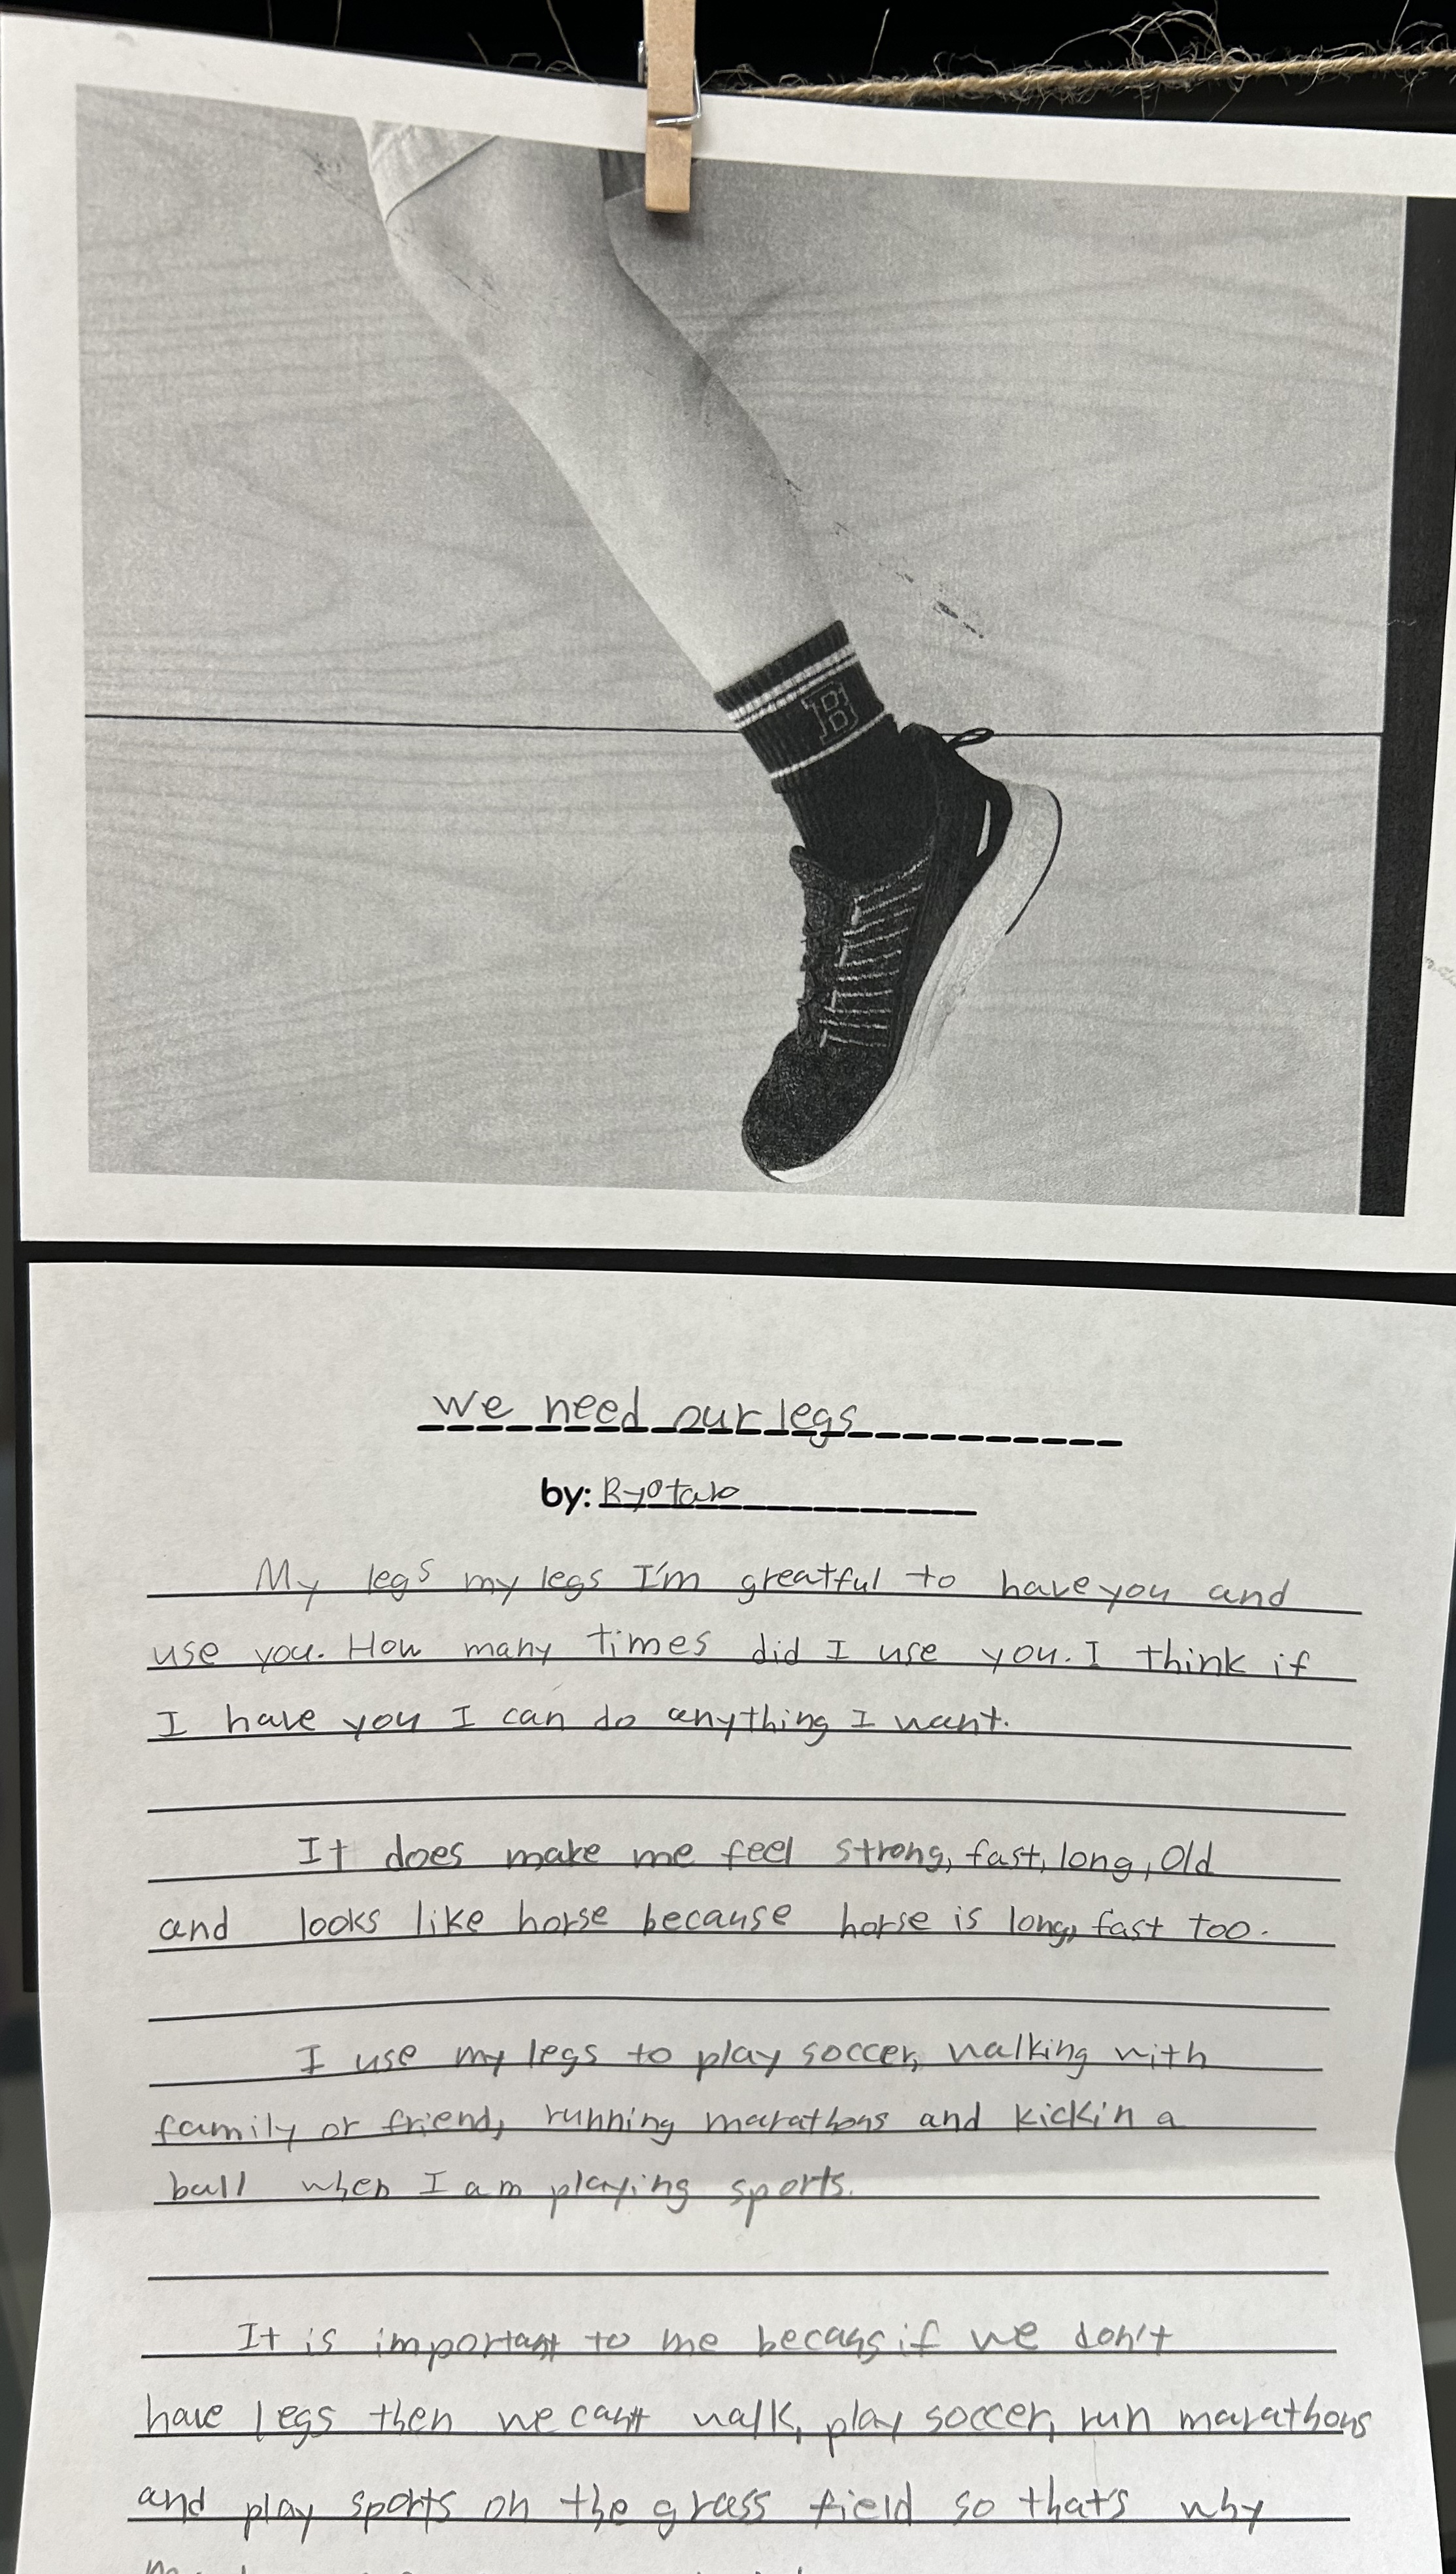 B
we need our legs
by: Ryotaro
My legs my legs I'm greatful to have you and
use you. How many times did I use you. I think if
I have you I can do anything I want.
It does make me feel strong, fast, long, old
and looks like horse because horse is long, fast too.
I use my legs to play soccer, walking with
family or friend, running marathons and kickin a
ball when I am playing sports.
It is important to me becaus if we don't
have legs then we can't walk, play soccer, run marathons
and play sports on the grass field so thats why